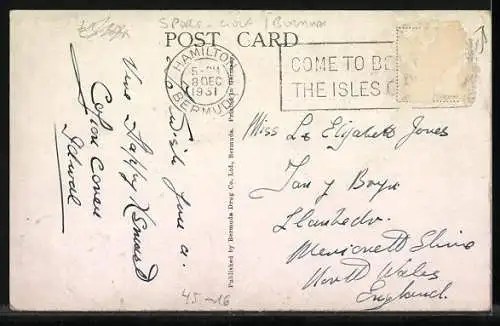 SPORT - GOLF / BERMUDA
POST CARD
HAMILTON
5 - PM
8 DEC
1931
BERMUDA
COME TO BE
THE ISLES O
To Wish you a
Very Happy Xmas
Idwal
Published by Bermuda Drug Co. Ltd., Bermuda. Printed in
Miss L. Elizabeth Jones
Tan y Bryn
Llanbedr
Merionett Shire
North Wales
England.
45-16